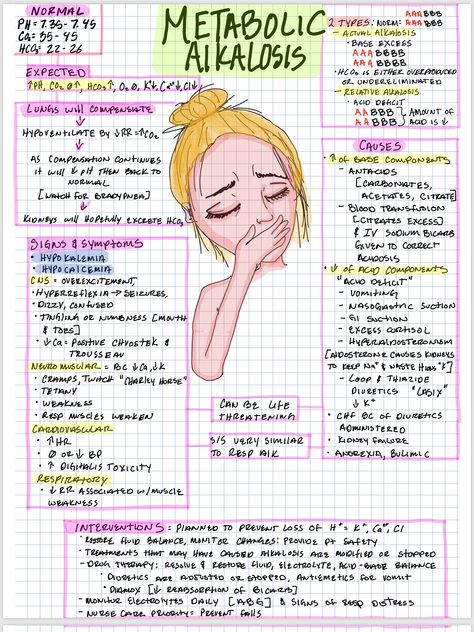 NORMAL
PH = 7.35-7.45
CO₂ = 35-45
HCO₃ = 22-26
METABOLIC
ALKALOSIS
AAABBB
2 TYPES: NORM: AAABBB
- ACTUAL ALKALOSIS
• BASE EXCESS
AAABBBB
AAABBBB
• HCO₃ IS EITHER OVERPRODUCED
OR UNDERELIMINATED
- RELATIVE ALKALOSIS
• ACID DEFICIT
AABBB } AMOUNT OF
AABBB } ACID IS ↓
EXPECTED
↑PH, CO₂ Ø↑, HCO₃↑, O₂ Ø, K⁺↓, Ca⁺⁺↓, Cl↓
LUNGS WILL COMPENSATE
↓
HYPOVENTILATE BY ↓RR = ↑CO₂
↓
AS COMPENSATION CONTINUES
IT WILL ↓ PH THEN BACK TO
NORMAL
[WATCH FOR BRADYPNEA]
↓
KIDNEYS WILL HOPEFULLY EXCRETE HCO₃
SIGNS & SYMPTOMS
• HYPOKALEMIA
• HYPOCALCEMIA
CNS = OVEREXCITEMENT,
• HYPERREFLEXIA → SEIZURES,
• DIZZY, CONFUSED
• TINGLING OR NUMBNESS [MOUTH
& TOES]
• ↓Ca = POSITIVE CHVOSTEK &
TROUSSEAU
NEUROMUSCULAR = BC ↓Ca, ↓K
• CRAMPS, TWITCH "CHARLEY HORSE"
• TETANY
• WEAKNESS
• RESP MUSCLES WEAKEN
CARDIOVASCULAR
• ↑HR
• Ø OR ↓ BP
• ↑ DIGITALIS TOXICITY
RESPIRATORY
• ↓RR ASSOCIATED W/MUSCLE
WEAKNESS
CAN BE LIFE
THREATENING
S/S VERY SIMILAR
TO RESP ALK
CAUSES
• ↑ OF BASE COMPONENTS
- ANTACIDS
[CARBONATES,
ACETATES, CITRATE]
- BLOOD TRANSFUSION
[CITRATES EXCESS]
& IV SODIUM BICARB
GIVEN TO CORRECT
ACIDOSIS
• ↓ OF ACID COMPONENTS
"ACID DEFICIT"
- VOMITING
- NASOGASTRIC SUCTION
- GI SUCTION
- EXCESS CORTISOL
- HYPERALDOSTERONISM
[ALDOSTERONE CAUSES KIDNEYS
TO KEEP Na⁺ & WASTE H⁺ "K"]
- LOOP & THIAZIDE
DIURETICS "LASIX"
↓ K⁺
• CHF BC OF DIURETICS
ADMINISTERED
• KIDNEY FAILURE
• ANOREXIA, BULIMIC
INTERVENTIONS = PLANNED TO PREVENT LOSS OF H⁺ = K⁺, Ca⁺⁺, Cl
• RESTORE FLUID BALANCE, MONITOR CHANGES: PROVIDE PT SAFETY
• TREATMENTS THAT MAY HAVE CAUSED ALKALOSIS ARE MODIFIED OR STOPPED
- DRUG THERAPY: RESOLVE & RESTORE FLUID, ELECTROLYTE, ACID-BASE BALANCE
• DIURETICS ARE ADJUSTED OR STOPPED, ANTIEMETICS FOR VOMIT
• DIAMOX [↓ REABSORPTION OF BICARB]
- MONITOR ELECTROLYTES DAILY [ABG] & SIGNS OF RESP DISTRESS
- NURSE CARE PRIORITY = PREVENT FALLS